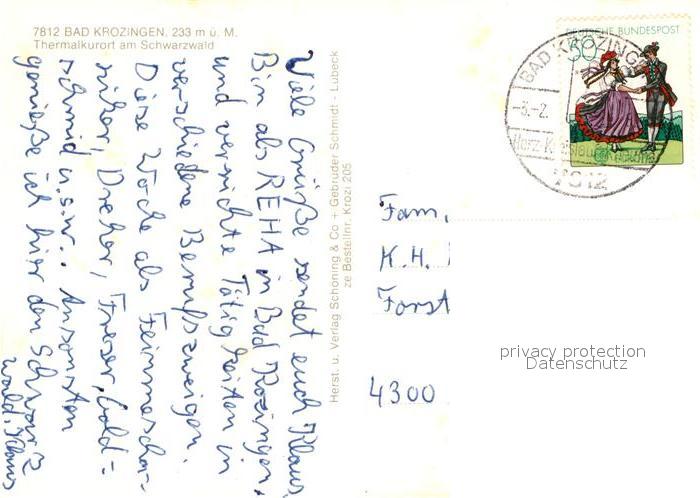 7812 BAD KROZINGEN, 233 m ü. M.
Thermalkurort am Schwarzwald
Viele Grüße sendet euch Klaus.
Bin als REHA in Bad Krozingen,
und verrichte Tätigkeiten in
verschiedene Berufszweigen.
Diese Woche als Feinmecha-
niker, Dreher, Fräser, Gold=
schmid u.s.w.. Ansonsten
genieße ich hier den Schwarz
wald. Klaus
Herst. u. Verlag Schöning & Co + Gebrüder Schmidt · Lübeck
ze Bestellnr. Krozi 205
DEUTSCHE BUNDESPOST
50
BAD KROZINGEN
-3.-2.
Herz-Kreislauf
7812
Fam.
K.H.
Forst
4300
privacy protection
Datenschutz